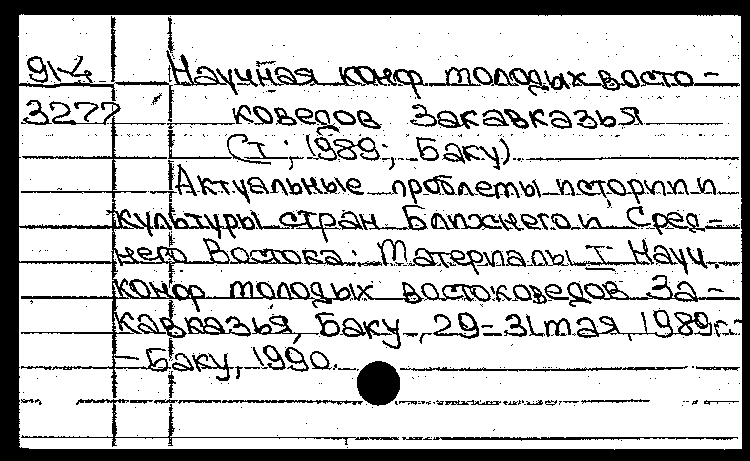 914
3277
Научная конф молодых восто-
коведов Закавказья
(I; 1989; Баку)
Актуальные проблемы истории и
культуры стран Ближнего и Сред-
него Востока: Материалы I Науч.
конф молодых востоковедов За-
кавказья, Баку, 29-31 мая, 1989г.-
- Баку, 1990.